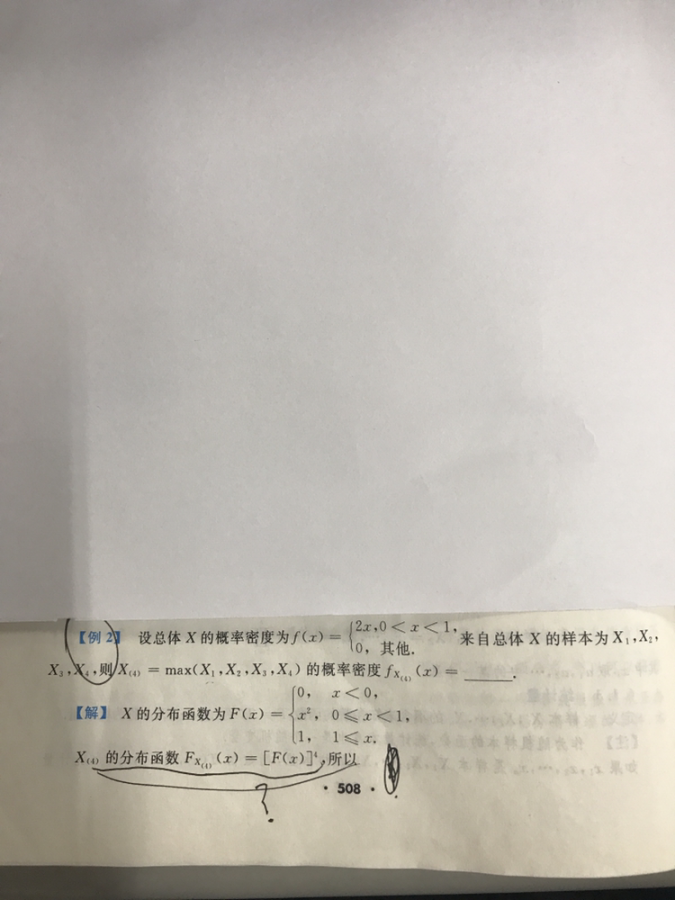 【例 2】 设总体 X 的概率密度为 f(x) = {2x, 0 < x < 1, 0, 其他. 来自总体 X 的样本为 X₁, X₂,
X₃, X₄, 则 X₍₄₎ = max(X₁, X₂, X₃, X₄) 的概率密度 f_{X₍₄₎}(x) = ______.
【解】 X 的分布函数为 F(x) = {0, x < 0, x², 0 ⩽ x < 1, 1, 1 ⩽ x,
X₍₄₎ 的分布函数 F_{X₍₄₎}(x) = [F(x)]⁴, 所以
?
· 508 ·